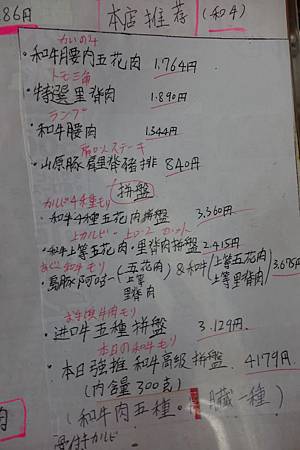 86円
本店推荐 (和牛)
カイのみ
・和牛腰内五花肉 1.764円
トモ三角
・特選里脊肉 1.890円
ランプ
・和牛腰肉 1.344円
肩ロースステーキ
・山原豚肩里脊豬排 840円
カルビ4種モリ
拼盤
・和牛4種五花肉拼盤 3.360円
上カルビ・上ロースカット
・和牛上等五花肉・里脊肉拼盤 2.415円
和牛モリ
・島豚阿咕-(五花肉 上等里脊肉)&和牛(上等五花肉 上等里脊肉) 3.675円
牛モリ
・进口牛五種拼盤 3.129円
本日の和牛モリ
・本日強推和牛高級拼盤 4179円
(内含量300克)
(和牛肉五種・臓一種)
骨付キカルビ
肉